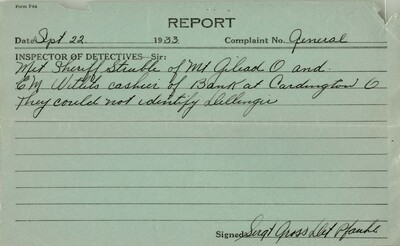 Form F44
REPORT
Date Sept 22 1933 Complaint No. General
INSPECTOR OF DETECTIVES—Sir:
Met Sheriff Struble of Mt Gilead O and
E M Willits cashier of Bank at Cardington O
They could not identify Dillinger
Signed Sergt Gross Det Pfauhl